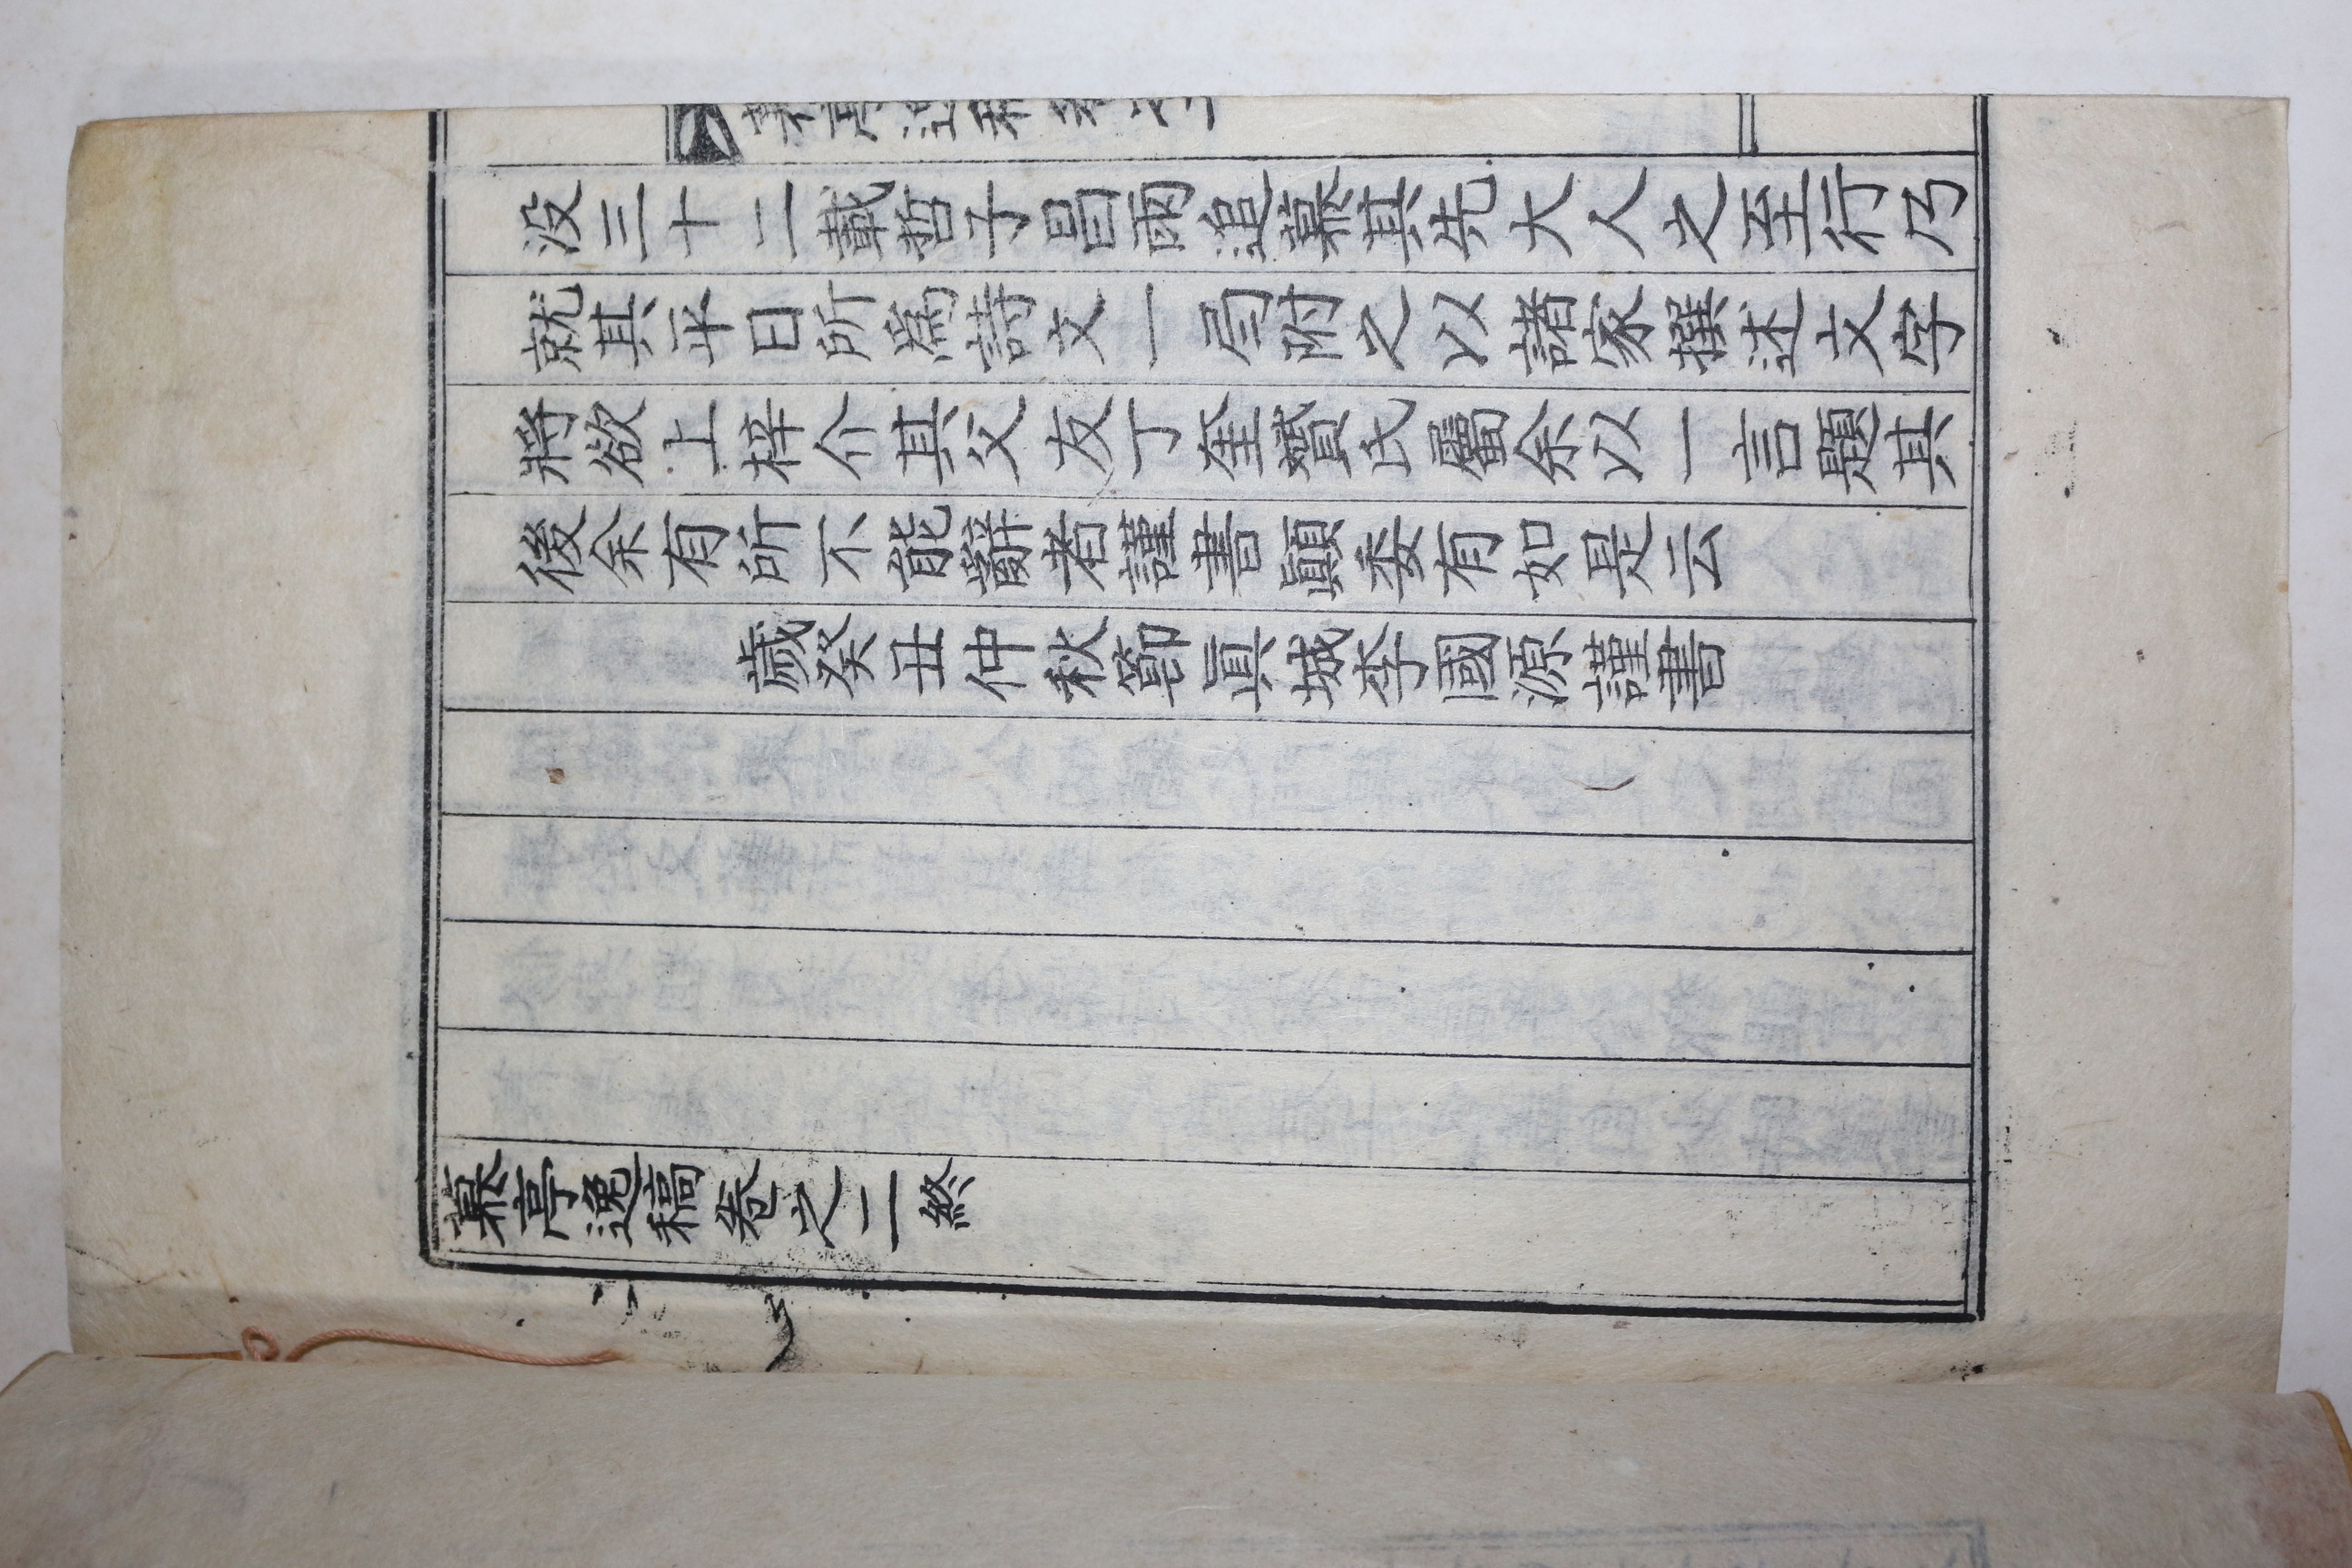 没三十二載哲子昌雨追慕其先大人之至行乃
就其平日所爲詩文一弓附之以諸家撰述文字
將欲上梓介其父友丁奎贊氏屬余以一言題其
後余有所不能辭者謹書顚委有如是云
歲癸丑仲秋節眞城李國源謹書
慕亭逸稿卷之二終